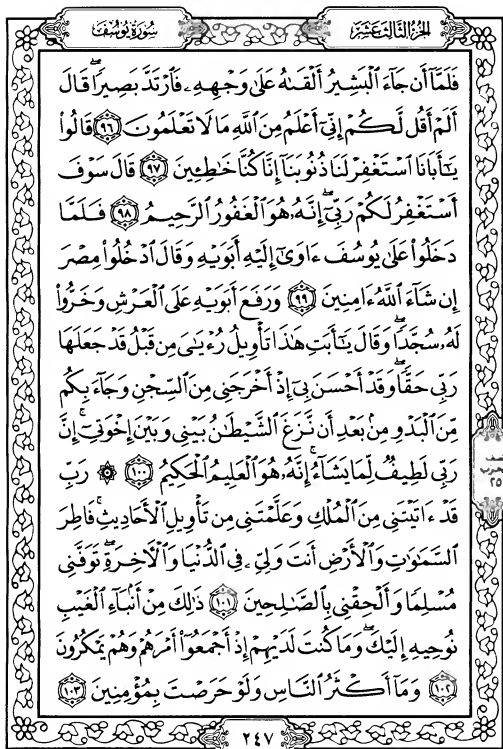 سُورَةُ يُوسُفَ
الجُزْءُ الثَّالِثَ عَشَرَ
فَلَمَّآ أَن جَآءَ ٱلْبَشِيرُ أَلْقَىٰهُ عَلَىٰ وَجْهِهِۦ فَٱرْتَدَّ بَصِيرًاۖ قَالَ
أَلَمْ أَقُل لَّكُمْ إِنِّىٓ أَعْلَمُ مِنَ ٱللَّهِ مَا لَا تَعْلَمُونَ ٩٦ قَالُوا۟
يَٰٓأَبَانَا ٱسْتَغْفِرْ لَنَا ذُنُوبَنَآ إِنَّا كُنَّا خَٰطِـِٔينَ ٩٧ قَالَ سَوْفَ
أَسْتَغْفِرُ لَكُمْ رَبِّىٓۖ إِنَّهُۥ هُوَ ٱلْغَفُورُ ٱلرَّحِيمُ ٩٨ فَلَمَّا
دَخَلُوا۟ عَلَىٰ يُوسُفَ ءَاوَىٰٓ إِلَيْهِ أَبَوَيْهِ وَقَالَ ٱدْخُلُوا۟ مِصْرَ
إِن شَآءَ ٱللَّهُ ءَامِنِينَ ٩٩ وَرَفَعَ أَبَوَيْهِ عَلَى ٱلْعَرْشِ وَخَرُّوا۟
لَهُۥ سُجَّدًاۖ وَقَالَ يَٰٓأَبَتِ هَٰذَا تَأْوِيلُ رُءْيَٰىَ مِن قَبْلُ قَدْ جَعَلَهَا
رَبِّى حَقًّاۖ وَقَدْ أَحْسَنَ بِىٓ إِذْ أَخْرَجَنِى مِنَ ٱلسِّجْنِ وَجَآءَ بِكُم
مِّنَ ٱلْبَدْوِ مِنۢ بَعْدِ أَن نَّزَغَ ٱلشَّيْطَٰنُ بَيْنِى وَبَيْنَ إِخْوَتِىٓۚ إِنَّ
رَبِّى لَطِيفٌ لِّمَا يَشَآءُۚ إِنَّهُۥ هُوَ ٱلْعَلِيمُ ٱلْحَكِيمُ ١٠٠ ۞ رَبِّ
قَدْ ءَاتَيْتَنِى مِنَ ٱلْمُلْكِ وَعَلَّمْتَنِى مِن تَأْوِيلِ ٱلْأَحَادِيثِۚ فَاطِرَ
ٱلسَّمَٰوَٰتِ وَٱلْأَرْضِ أَنتَ وَلِىِّۦ فِى ٱلدُّنْيَا وَٱلْءَاخِرَةِۖ تَوَفَّنِى
مُسْلِمًا وَأَلْحِقْنِى بِٱلصَّٰلِحِينَ ١٠١ ذَٰلِكَ مِنْ أَنۢبَآءِ ٱلْغَيْبِ
نُوحِيهِ إِلَيْكَۖ وَمَا كُنتَ لَدَيْهِمْ إِذْ أَجْمَعُوٓا۟ أَمْرَهُمْ وَهُمْ يَمْكُرُونَ
١٠٢ وَمَآ أَكْثَرُ ٱلنَّاسِ وَلَوْ حَرَصْتَ بِمُؤْمِنِينَ ١٠٣
نصف
الحزب
٢٥
٢٤٧